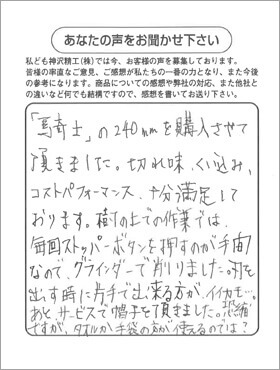 あなたの声をお聞かせ下さい
私ども神沢精工(株)では今、お客様の声を募集しております。
皆様の率直なご意見、ご感想が私たちの一番の力となり、また今後
の参考になります。商品についての感想や弊社の対応、また他社と
の違いなど何でも結構ですので、感想を書いてお送り下さい。
「馬奇士」の240mmを購入させて
頂きました。切れ味、くい込み、
コストパフォーマンス、十分満足して
おります。樹の上での作業では、
毎回ストッパーボタンを押すのが手間
なので、グラインダーで削りました。刃を
出す時に片手で出来る方が、イイカモ…。
あと、サービスで帽子を頂きました。恐縮
ですが、タオルか手袋の方が使えるのでは?